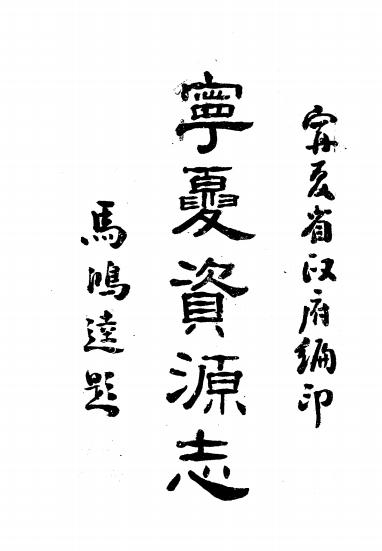 寧夏省政府編印
寧夏資源志
馬鴻逵題